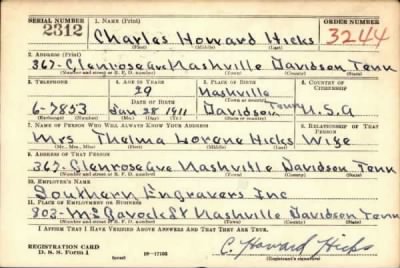 SERIAL NUMBER 1. NAME (Print) ORDER NUMBER
2312 Charles Howard Hicks 3244
(First) (Middle) (Last)
2. ADDRESS (Print)
367-Glenrose Ave Nashville Davidson Tenn
3. TELEPHONE 4. AGE IN YEARS 5. PLACE OF BIRTH 6. COUNTRY OF CITIZENSHIP
29 Nashville
DATE OF BIRTH (Town or county)
6-7853 Jan 28 1911 Davidson Tenn U.S.A
(Exchange) (Number) (Mo.) (Day) (Yr.) (State or country)
7. NAME OF PERSON WHO WILL ALWAYS KNOW YOUR ADDRESS 8. RELATIONSHIP OF THAT PERSON
Mrs Thelma Lorene Hicks Wife
(Mr., Mrs., Miss) (First) (Middle) (Last)
9. ADDRESS OF THAT PERSON
367-Glenrose Ave Nashville Davidson Tenn
10. EMPLOYER'S NAME
Southern Engravers Inc
11. PLACE OF EMPLOYMENT OR BUSINESS
803-McGavock St Nashville Davidson Tenn
I AFFIRM THAT I HAVE VERIFIED ABOVE ANSWERS AND THAT THEY ARE TRUE.
C. Howard Hicks
REGISTRATION CARD
D. S. S. Form 1 16-17105 (Registrant's signature)